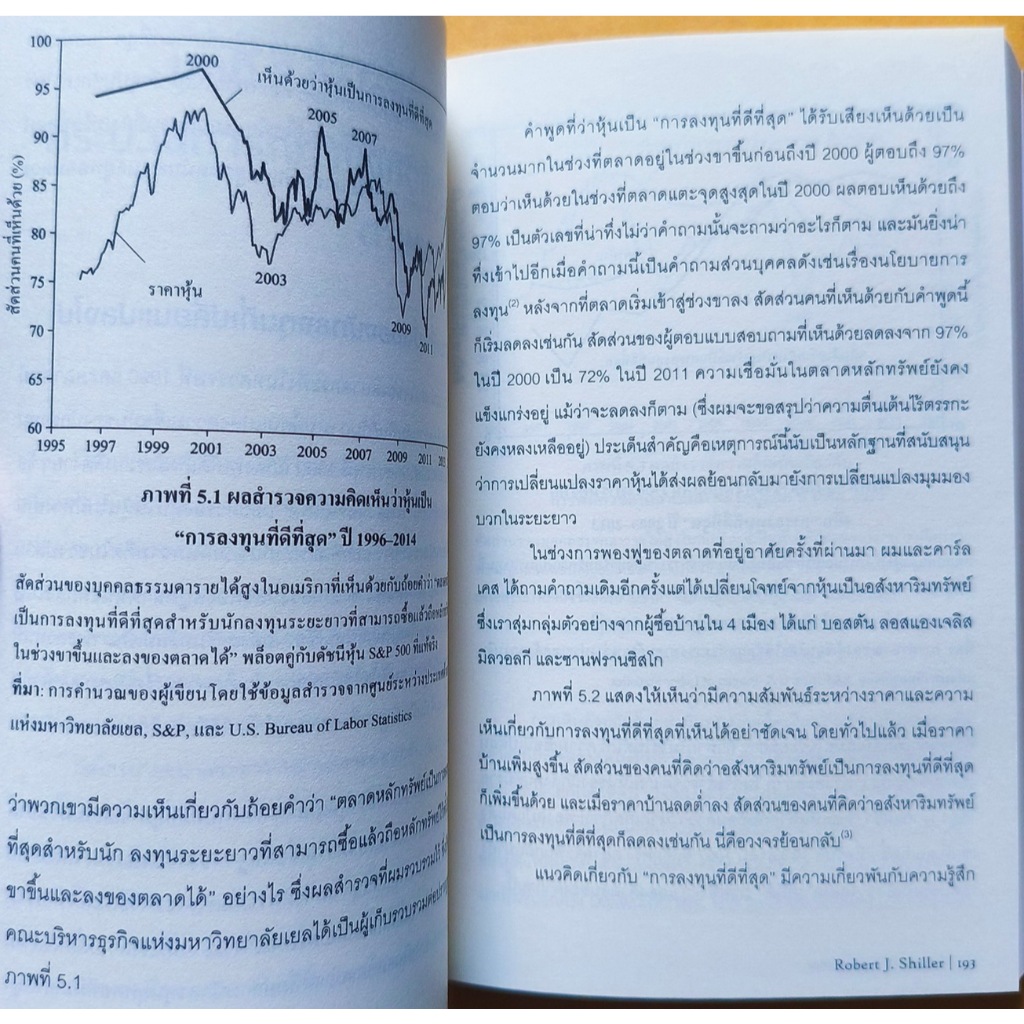 100
95
90
85
80
75
70
65
60
สัดส่วนคนที่เห็นด้วย (%)
2000
เห็นด้วยว่าหุ้นเป็นการลงทุนที่ดีที่สุด
2005
2007
2003
ราคาหุ้น
2009
2011
1995 1997 1999 2001 2003 2005 2007 2009 2011
ภาพที่ 5.1 ผลสำรวจความคิดเห็นว่าหุ้นเป็น
“การลงทุนที่ดีที่สุด” ปี 1996–2014
สัดส่วนของบุคคลธรรมดารายได้สูงในอเมริกาที่เห็นด้วยกับถ้อยคำว่า
เป็นการลงทุนที่ดีที่สุดสำหรับนักลงทุนระยะยาวที่สามารถซื้อแล้วถือ
ในช่วงขาขึ้นและลงของตลาดได้” พล็อตคู่กับดัชนีหุ้น S&P 500 ที่แท้จริง
ที่มา: การคำนวณของผู้เขียน โดยใช้ข้อมูลสำรวจจากศูนย์ระหว่างประเทศ
แห่งมหาวิทยาลัยเยล, S&P, และ U.S. Bureau of Labor Statistics
ว่าพวกเขามีความเห็นเกี่ยวกับถ้อยคำว่า “ตลาดหลักทรัพย์เป็นการ
ที่สุดสำหรับนัก ลงทุนระยะยาวที่สามารถซื้อแล้วถือหลักทรัพย์
ขาขึ้นและลงของตลาดได้” อย่างไร ซึ่งผลสำรวจที่ผมรวบรวมไว้
คณะบริหารธุรกิจแห่งมหาวิทยาลัยเยลได้เป็นผู้เก็บรวบรวมต่อ
ภาพที่ 5.1
คำพูดที่ว่าหุ้นเป็น “การลงทุนที่ดีที่สุด” ได้รับเสียงเห็นด้วยเป็น
จำนวนมากในช่วงที่ตลาดอยู่ในช่วงขาขึ้นก่อนถึงปี 2000 ผู้ตอบถึง 97%
ตอบว่าเห็นด้วยในช่วงที่ตลาดแตะจุดสูงสุดในปี 2000 ผลตอบเห็นด้วยถึง
97% เป็นตัวเลขที่น่าทึ่งไม่ว่าคำถามนั้นจะถามว่าอะไรก็ตาม และมันยิ่งน่า
ทึ่งเข้าไปอีกเมื่อคำถามนี้เป็นคำถามส่วนบุคคลดังเช่นเรื่องนโยบายการ
ลงทุน(2) หลังจากที่ตลาดเริ่มเข้าสู่ช่วงขาลง สัดส่วนคนที่เห็นด้วยกับคำพูดนี้
ก็เริ่มลดลงเช่นกัน สัดส่วนของผู้ตอบแบบสอบถามที่เห็นด้วยลดลงจาก 97%
ในปี 2000 เป็น 72% ในปี 2011 ความเชื่อมั่นในตลาดหลักทรัพย์ยังคง
แข็งแกร่งอยู่ แม้ว่าจะลดลงก็ตาม (ซึ่งผมจะขอสรุปว่าความตื่นเต้นไร้ตรรกะ
ยังคงหลงเหลืออยู่) ประเด็นสำคัญคือเหตุการณ์นี้นับเป็นหลักฐานที่สนับสนุน
ว่าการเปลี่ยนแปลงราคาหุ้นได้ส่งผลย้อนกลับมายังการเปลี่ยนแปลงมุมมอง
บวกในระยะยาว
ในช่วงการพองฟูของตลาดที่อยู่อาศัยครั้งที่ผ่านมา ผมและคาร์ล
เคส ได้ถามคำถามเดิมอีกครั้งแต่ได้เปลี่ยนโจทย์จากหุ้นเป็นอสังหาริมทรัพย์
ซึ่งเราสุ่มกลุ่มตัวอย่างจากผู้ซื้อบ้านใน 4 เมือง ได้แก่ บอสตัน ลอสแองเจลิส
มิลวอลกี และซานฟรานซิสโก
ภาพที่ 5.2 แสดงให้เห็นว่ามีความสัมพันธ์ระหว่างราคาและความ
เห็นเกี่ยวกับการลงทุนที่ดีที่สุดที่เห็นได้อย่าชัดเจน โดยทั่วไปแล้ว เมื่อราคา
บ้านเพิ่มสูงขึ้น สัดส่วนของคนที่คิดว่าอสังหาริมทรัพย์เป็นการลงทุนที่ดีที่สุด
ก็เพิ่มขึ้นด้วย และเมื่อราคาบ้านลดต่ำลง สัดส่วนของคนที่คิดว่าอสังหาริมทรัพย์
เป็นการลงทุนที่ดีที่สุดก็ลดลงเช่นกัน นี่คือวงจรย้อนกลับ(3)
แนวคิดเกี่ยวกับ “การลงทุนที่ดีที่สุด” มีความเกี่ยวพันกับความรู้สึก
Robert J. Shiller | 193